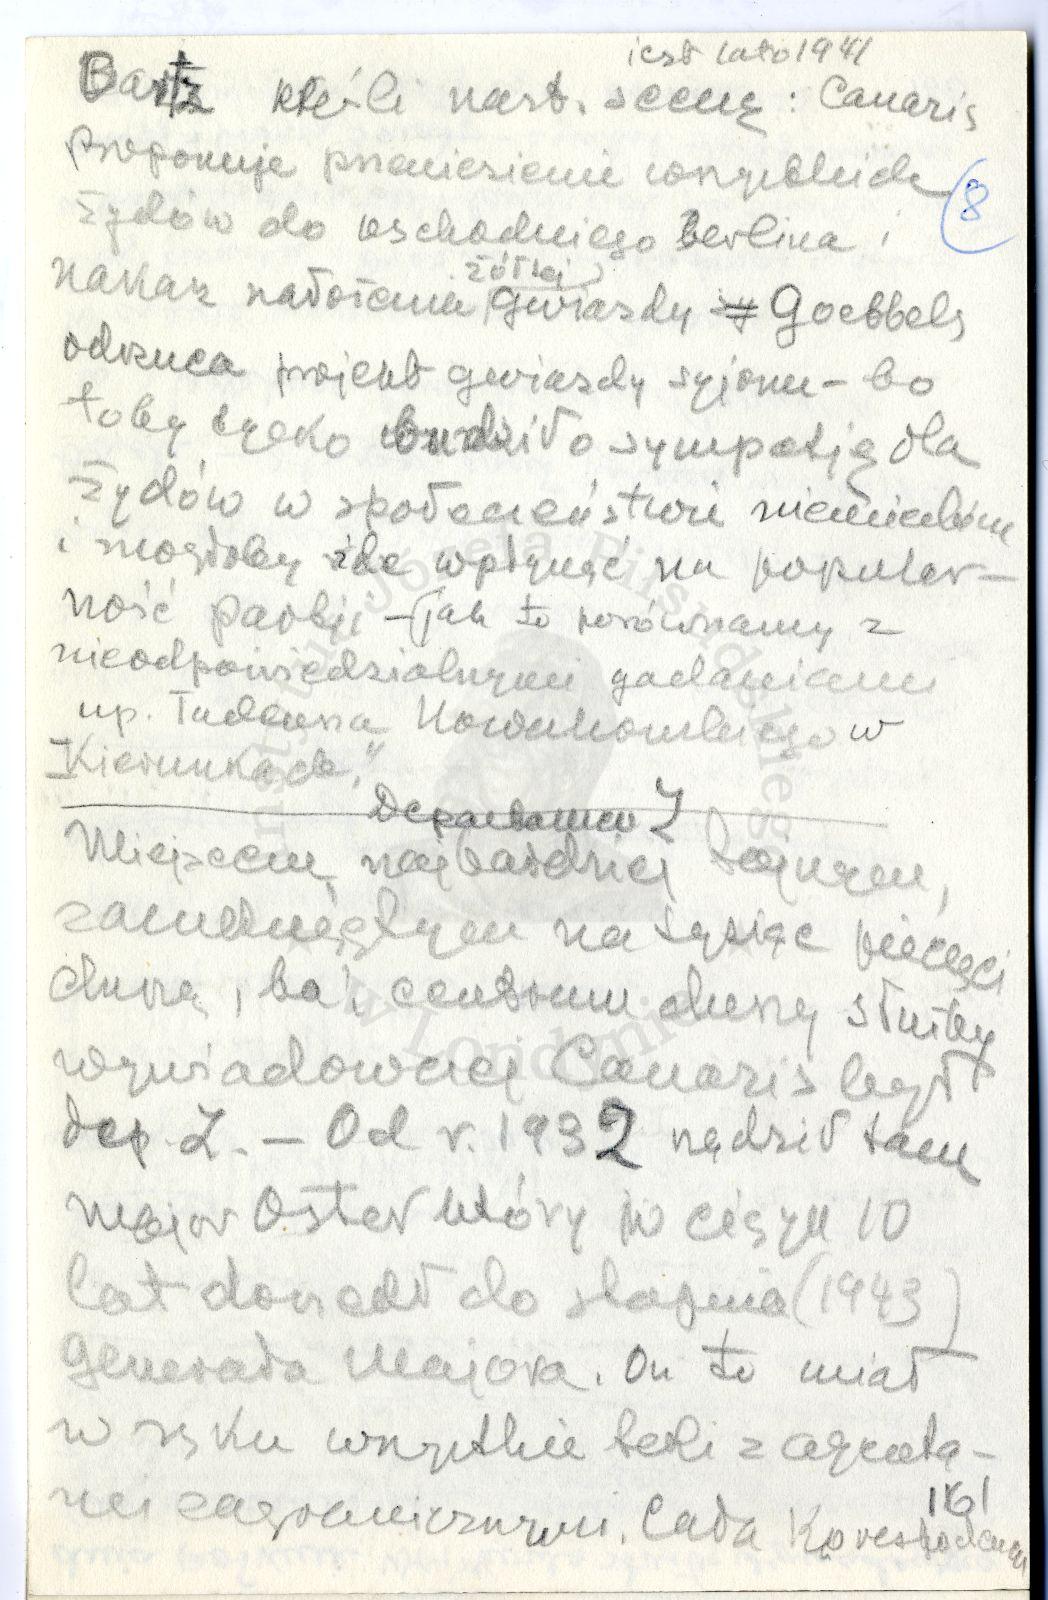 jest lato 1941
Bartz kréśli nast. scenę: Canaris
proponuje przeniesienie wszystkich
8
żydów do wschodniego Berlina i
nakaz nałożenia żółtej gwiazdy Goebbels
odrzuca projekt gwiazdy syjonu – bo
toby tylko budziło sympatję dla
Żydów w społeczeństwie niemieckim
i mogłoby źle wpłynąć na popular-
ność partji, – (jak to porównamy z
nieodpowiedzialnymi gadaniami
np. Tadeusza Nowakowskiego w
"Kierunkach."
Departament Z
Miejscem najbardziej tajnym,
zamkniętym na tysiąc pieczęci
duszą, ba, centrum duszy służby
wywiadowczej Canaris był
dep Z. – Od r. 1932 rządził tam
major Oster który w ciągu 10
lat doszedł do stopnia (1943)
Generała Majora. On to miał
w ręku wszystkie teki z agenta-
mi zagranicznymi. Cała Koresponden
Instytut Józefa Piłsudskiego
w Londynie